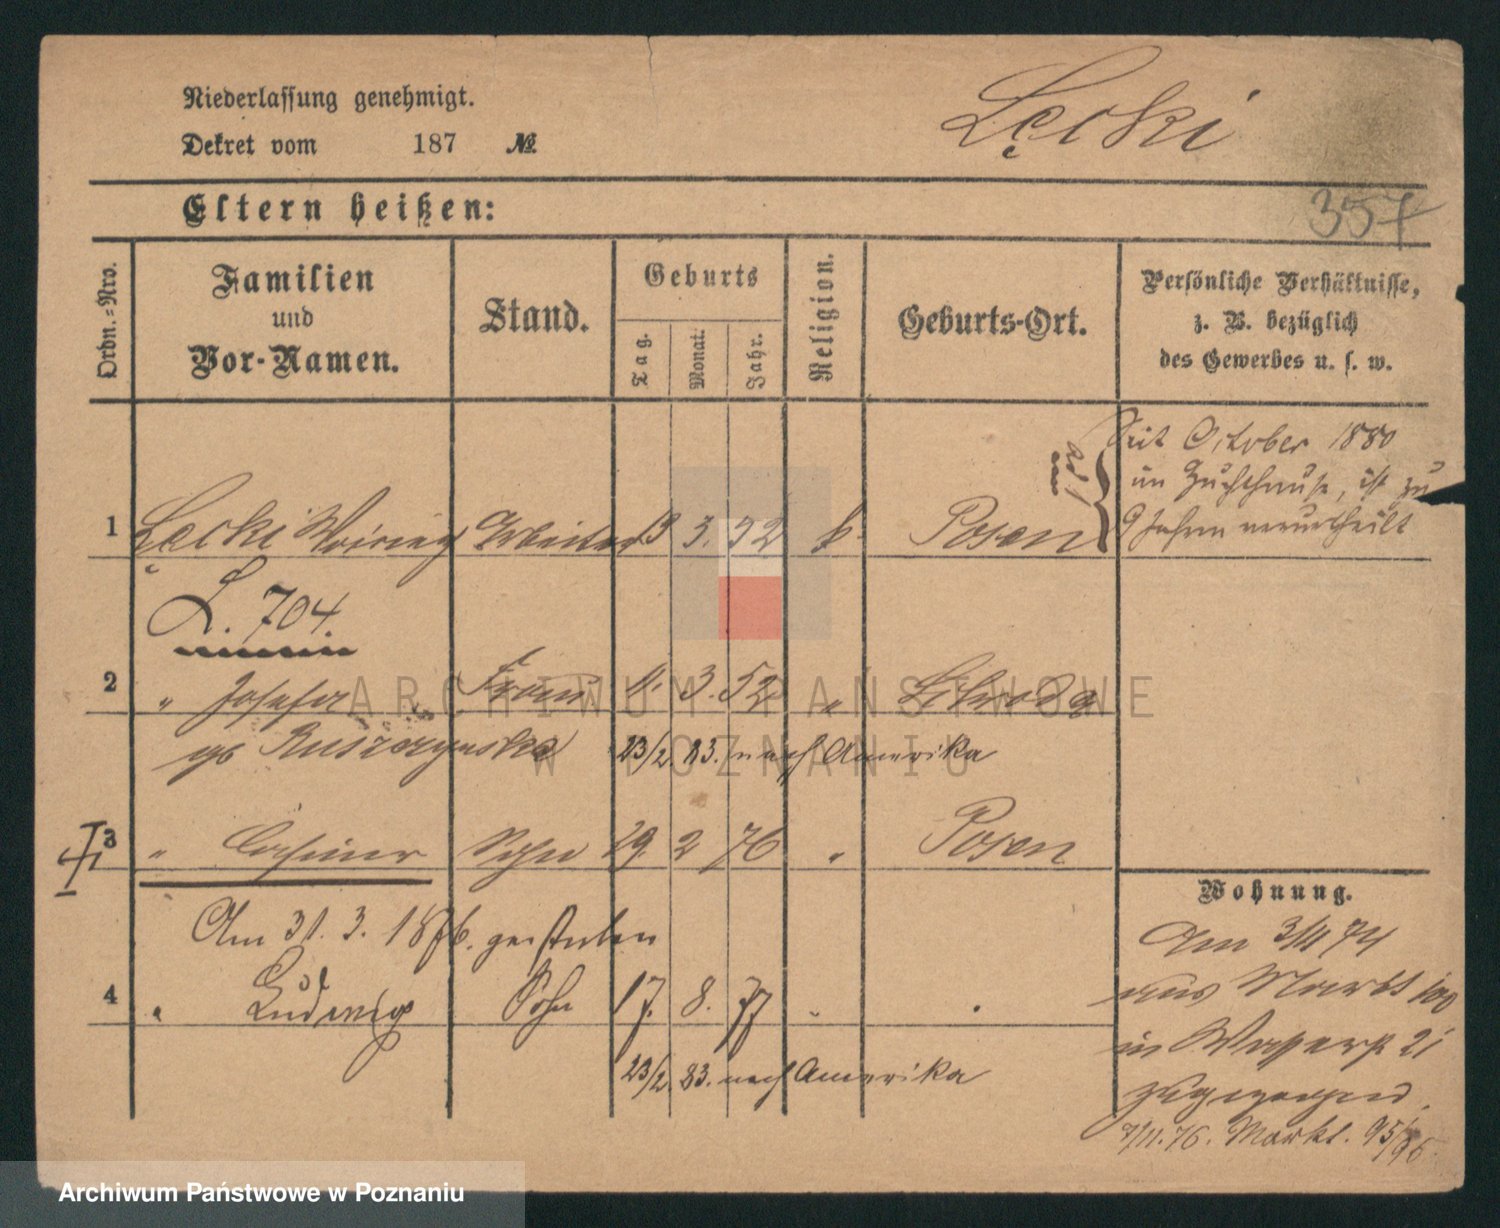 Niederlassung genehmigt.
Dekret vom 187 №
Łęcki
Eltern heißen:
357
Ordn.-Nro.
Familien
und
Vor-Namen.
Stand.
Geburts
Tag.
Monat.
Jahr.
Religion.
Geburts-Ort.
Persönliche Verhältnisse,
z. B. bezüglich
des Gewerbes u. s. w.
ad 1
Seit October 1880
im Zuchthause, ist zu
9 Jahren verurtheilt
1 Łęcki Arbeiter 3. 52 k. Posen
L. 704.
2 " Josefa Frau 11. 3. 52 "
gb Ruszczynska 23/2. 83. nach Amerika
3 " Casimir Sohn 29. 2 76 " Posen
Am 31. 3. 1876. gestorben
4 " Ludwig Sohn 17. 8. 77 "
23/2. 83. nach Amerika
Wohnung.
Am 3/11 74
aus Markt 100
in Wasserstr 21
zugezogen.
7/11. 76. Markt. 95/96.
ARCHIWUM PAŃSTWOWE
W POZNANIU
Archiwum Państwowe w Poznaniu